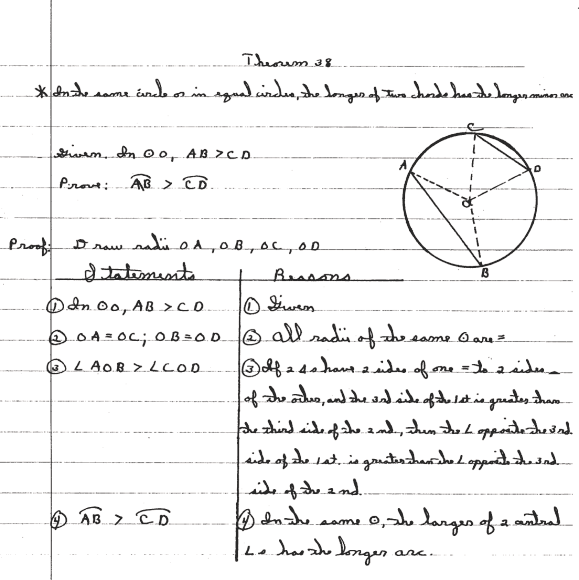 Theorem 38
* In the same circle or in equal circles, the longer of two chords has the longer minor arc
Given: In ⊙O, AB > CD
Prove: A͡B > C͡D
C
A
D
O
B
Proof: Draw radii OA, OB, OC, OD
Statements | Reasons
① In ⊙O, AB > CD | ① Given
② OA = OC; OB = OD | ② All radii of the same ⊙ are =
③ ∠AOB > ∠COD | ③ If 2 △s have 2 sides of one = to 2 sides
of the other, and the 3rd side of the 1st is greater than
the third side of the 2nd, then the ∠ opposite the 3rd
side of the 1st. is greater than the ∠ opposite the 3rd
side of the 2nd.
④ A͡B > C͡D | ④ In the same ⊙, the larger of 2 central
∠s has the longer arc.